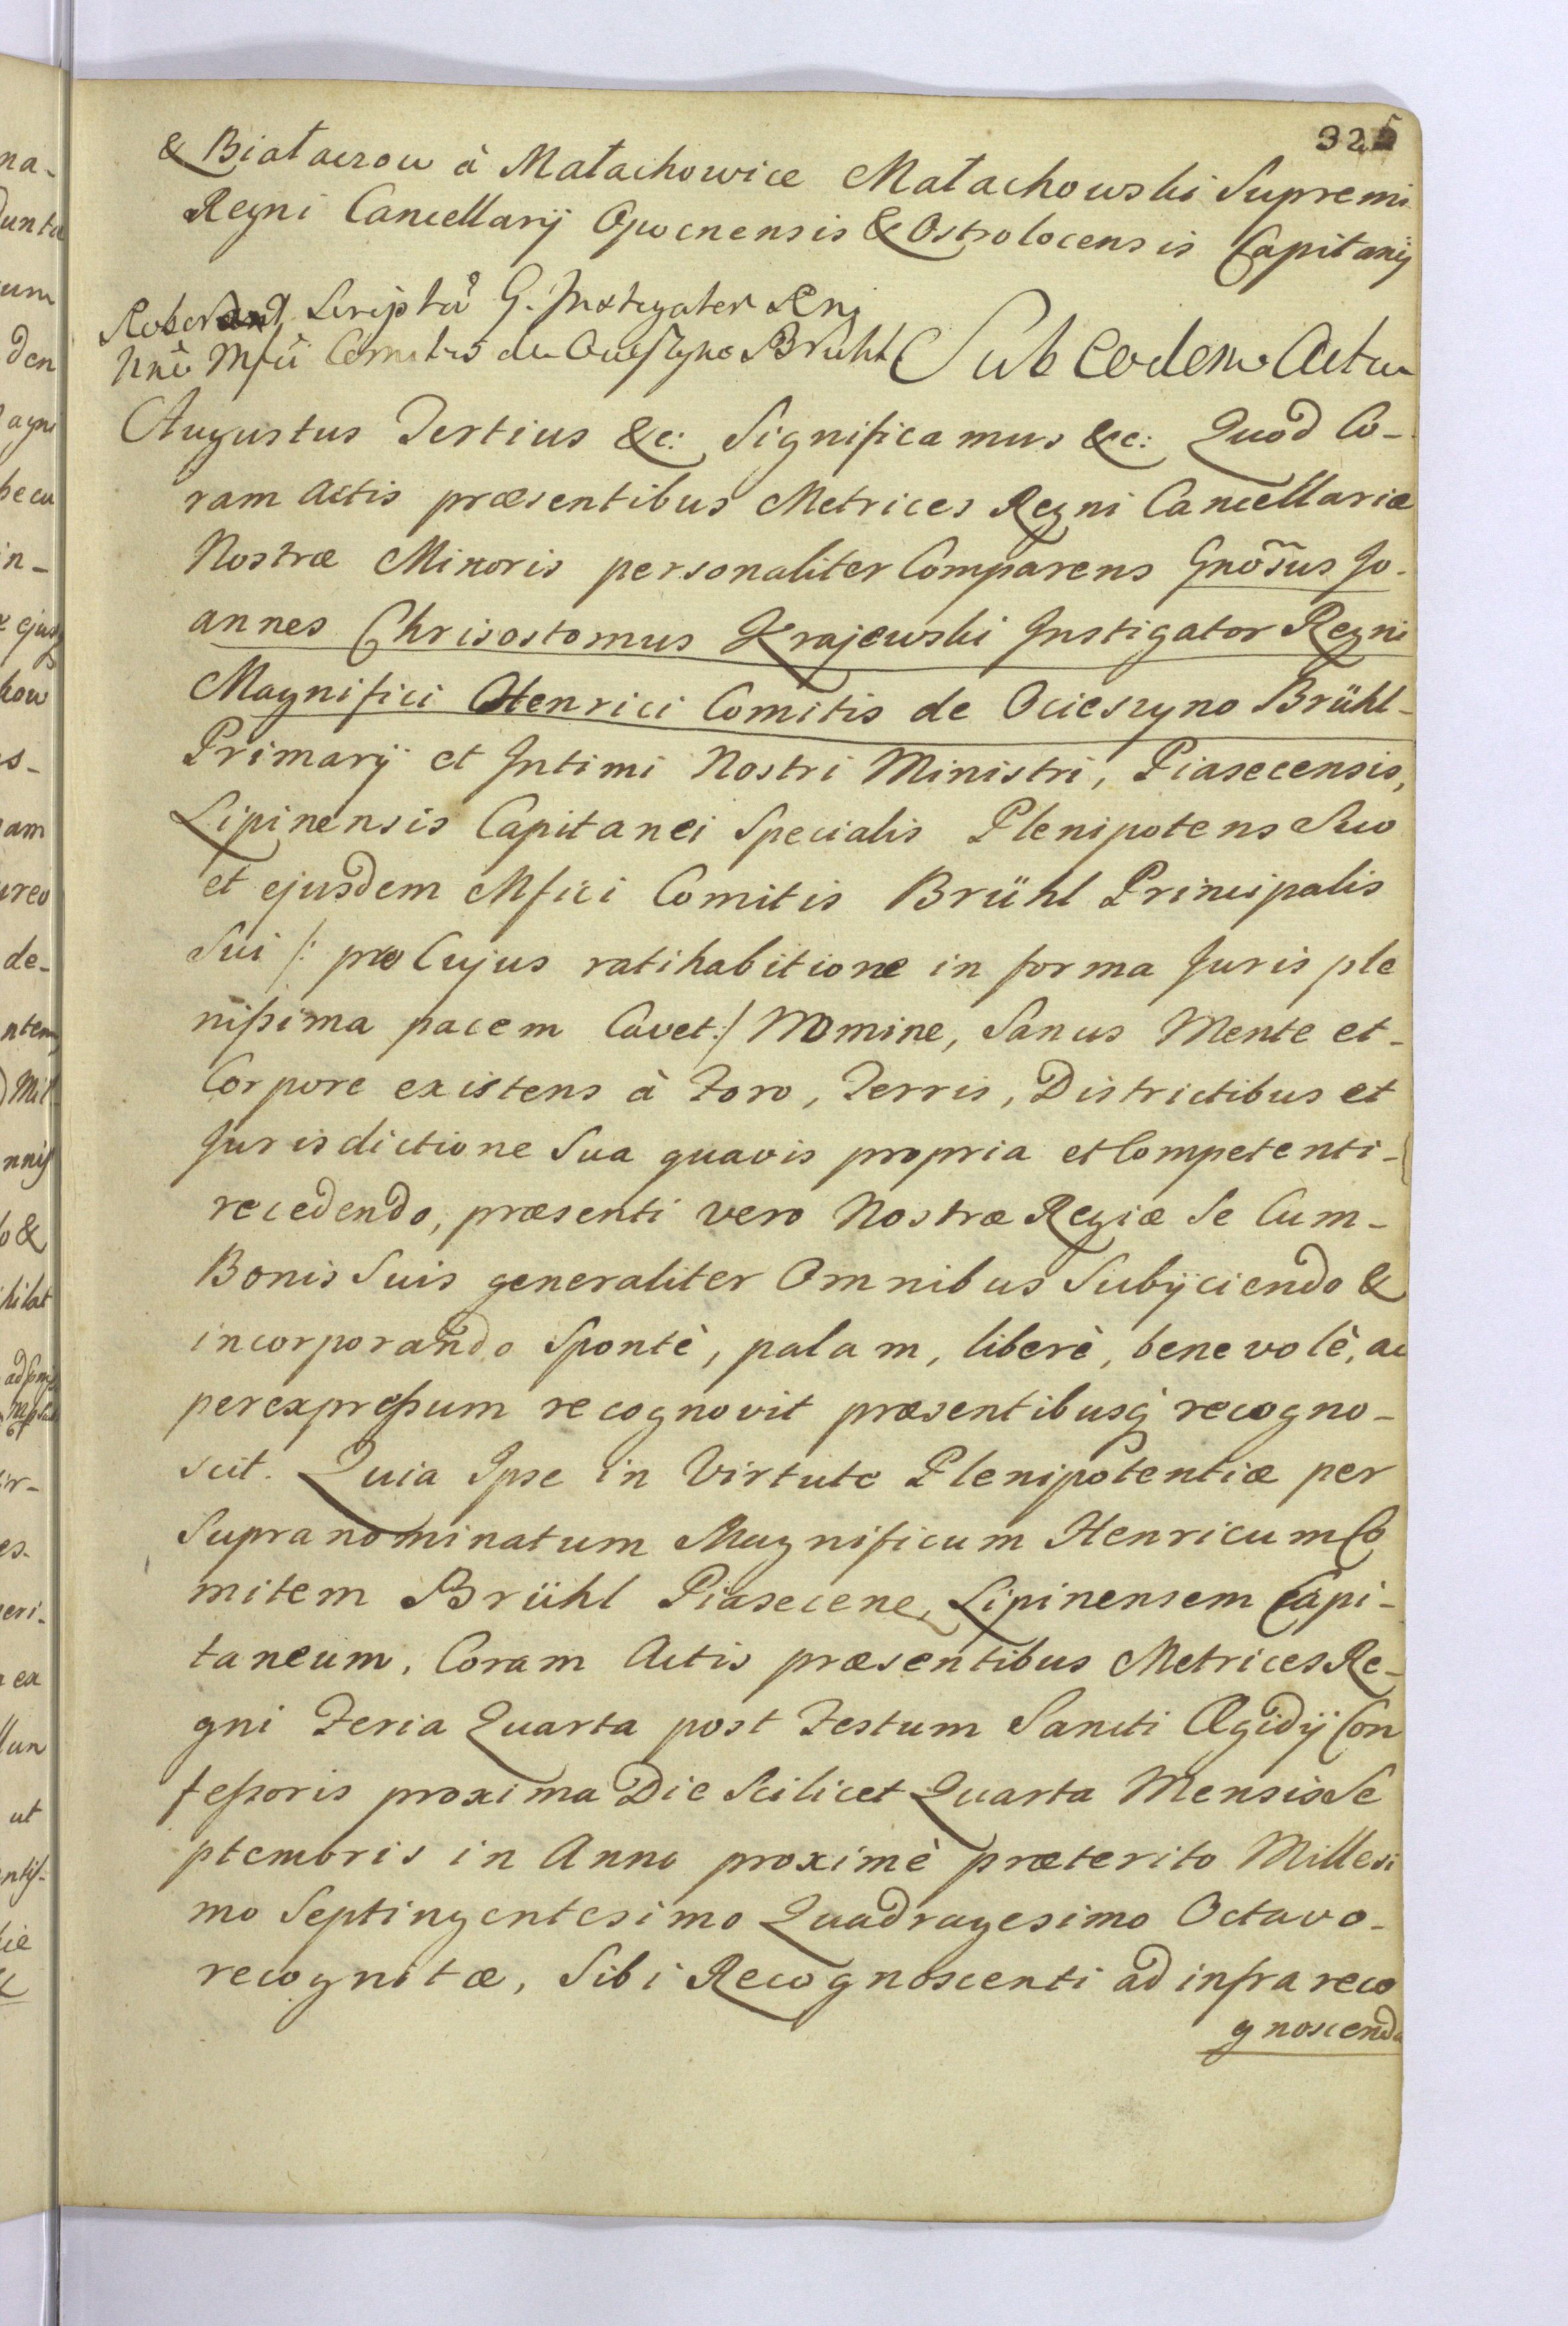 325
& Białaczow à Małachowice Małachowski Supremi
Regni Cancellarij Opocnensis & Ostrolocensis Capitanij
Roborand Scripta G. Instigator Rni
nnê Mfci Comitis de Ocieszyno Brühl Sub Eodem Actu
Augustus Tertius &c: Significamus &c: Quod Co-
ram Actis præsentibus Metrices Regni Cancellariæ
Nostræ Minoris personaliter Comparens Gnõsus Jo-
annes Chrisostomus Krajewski Instigator Regni
Magnifici Henrici Comitis de Ocieszyno Brühl-
Primarij et Intimi Nostri Ministri, Piasecensis,
Lipinensis Capitanei Specialis Plenipotens Suo
et ejusdem Mfici Comitis Brühl Principalis
Sui /: pro Cujus ratihabitione in forma Juris ple
nißima pacem Cavet :/ Nomine, Sanus Mente et-
Corpore existens à Foro, Terris, Districtibus et
Jurisdictione Sua quavis propria et Competenti-
recedendo, præsenti vero Nostræ Regiæ Se Cum-
Bonis Suis generaliter Omnibus Subijciendo &
incorporando Spontè, palam, liberè, benevolè, ac
perexpreßum recognovit præsentibusq recogno-
scit. Quia Ipse in Virtute Plenipotentiæ per
Supranominatum Magnificum Henricum Co
mitem Brühl Piasecene, Lipinensem Capi-
taneum, Coram Actis præsentibus Metrices Re-
gni Feria Quarta post Festum Sancti Ægidij Con
feßoris proxima Die Scilicet Quarta Mensis Se
ptembris in Anno proximè præterito Millesi
mo Septingentesimo Quadragesimo Octavo-
recognitæ, Sibi Recognoscenti ad infra reco
gnoscenda